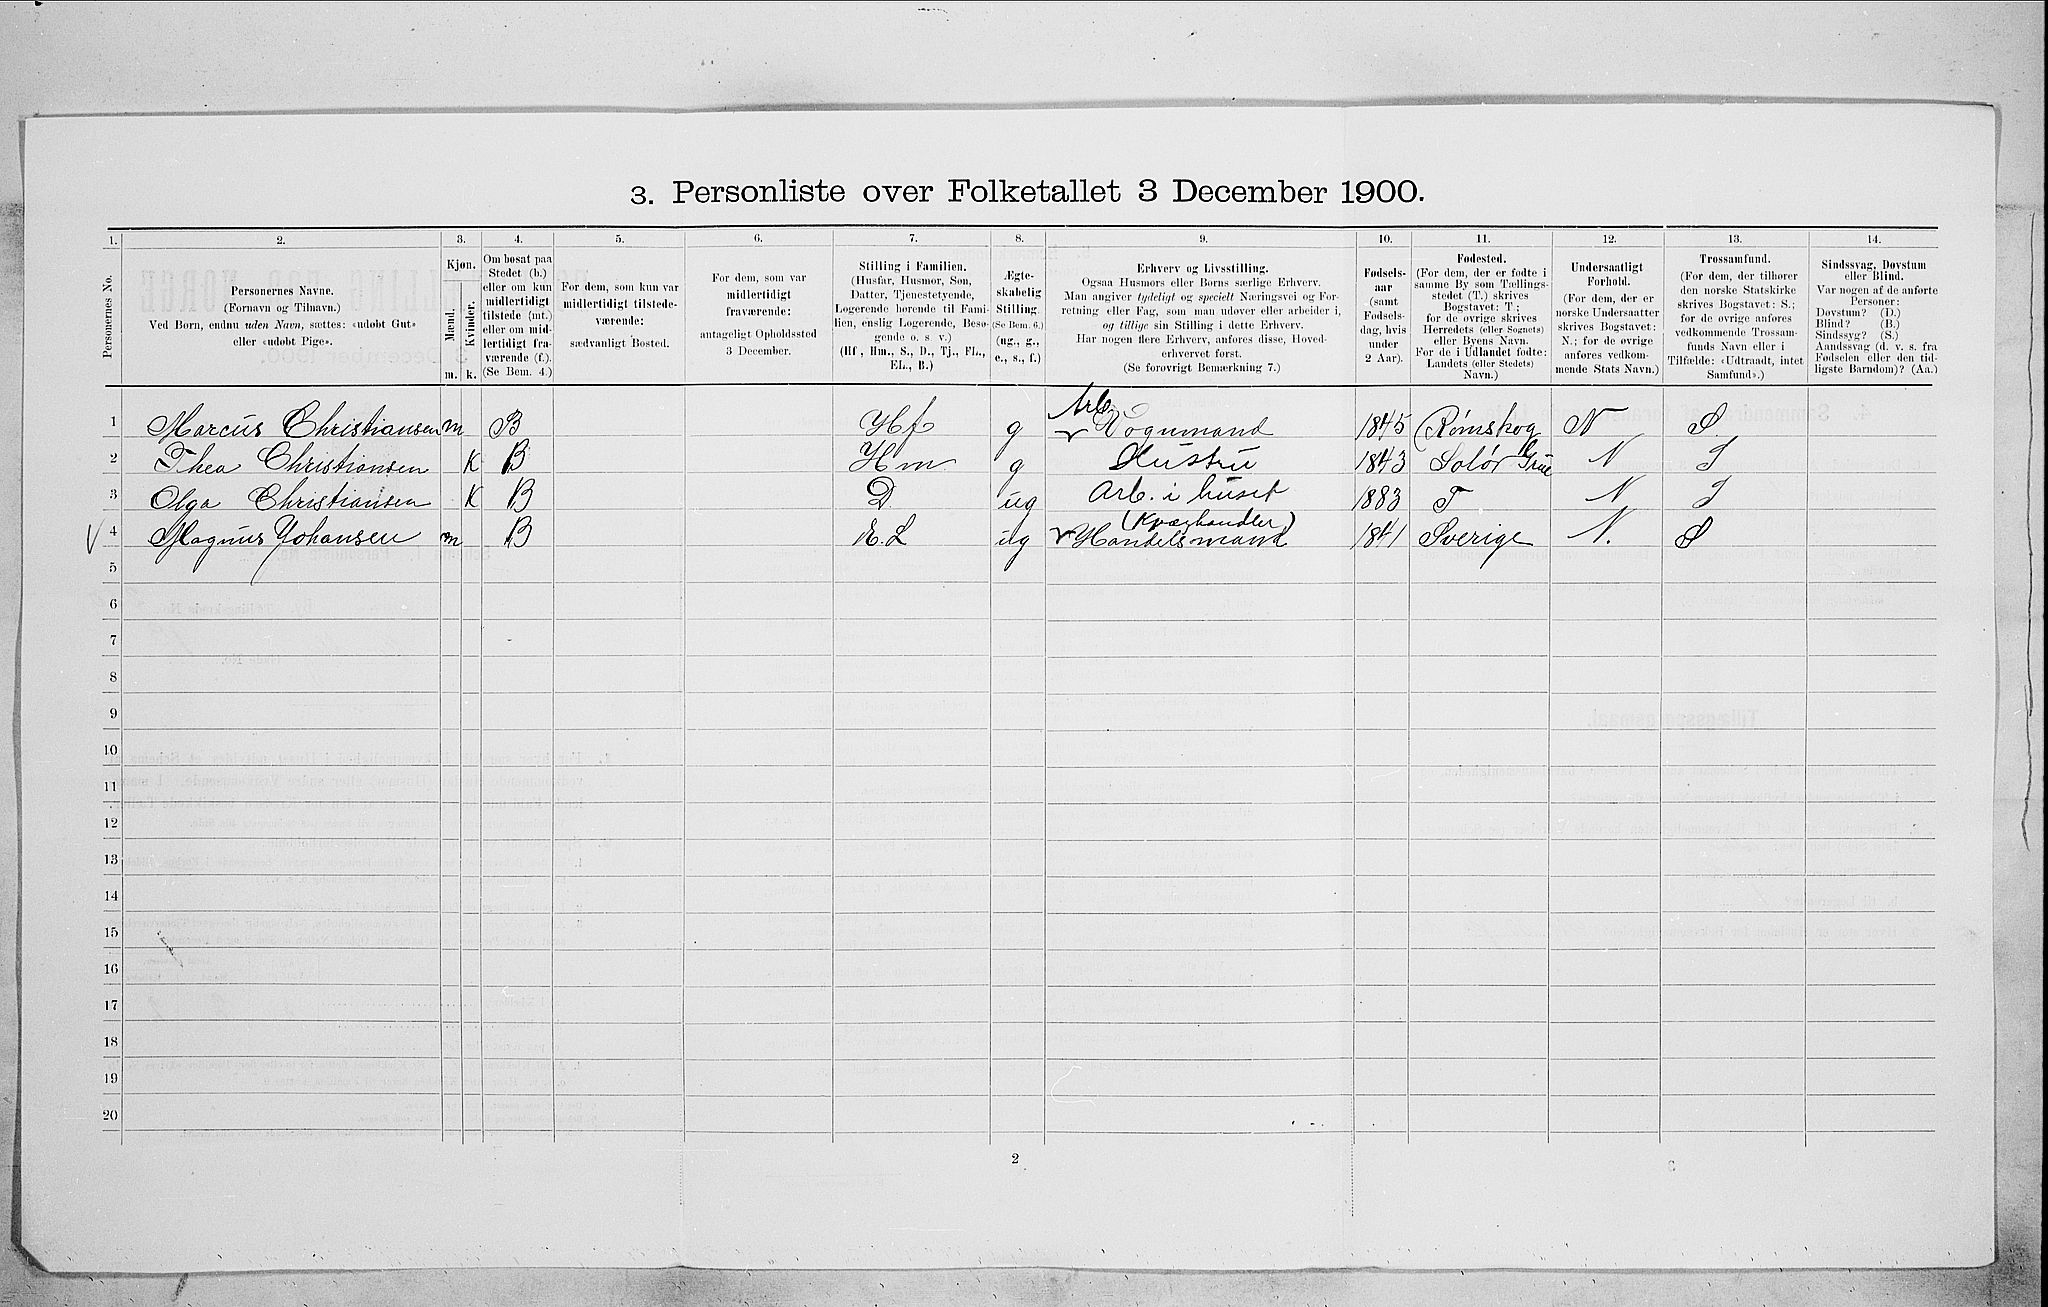 3. Personliste over Folketallet 3 December 1900.
1. 2. 3. 4. 5. 6. 7. 8. 9. 10. 11. 12. 13. 14.
Personernes No.
Personernes Navne.
(Fornavn og Tilnavn.)
Ved Børn, endnu uden Navn, sættes: «udøbt Gut»
eller «udøbt Pige».
Kjøn.
Mænd.
Kvinder.
m. k.
Om bosat paa
Stedet (b.)
eller om kun
midlertidigt
tilstede (mt.)
eller om mid-
lertidigt fra-
værende (f.).
(Se Bem. 4.)
For dem, som kun var
midlertidigt tilstede-
værende:
sædvanligt Bosted.
For dem, som var
midlertidigt
fraværende:
antageligt Opholdssted
3 December.
Stilling i Familien.
(Husfar, Husmor, Søn,
Datter, Tjenestetyende,
Logerende hørende til Fami-
lien, enslig Logerende, Besø-
gende o. s. v.)
(Hf., Hm., S., D., Tj., FL.,
EL., B.)
Ægte-
skabelig
Stilling.
(Se Bem. 6.)
(ug., g.,
e., s., f.)
Erhverv og Livsstilling.
Ogsaa Husmors eller Børns særlige Erhverv.
Man angiver tydeligt og specielt Næringsvei og For-
retning eller Fag, som man udøver eller arbeider i,
og tillige sin Stilling i dette Erhverv.
Har nogen flere Erhverv, anføres disse, Hoved-
erhvervet først.
(Se forøvrigt Bemærkning 7.)
Fødsels-
aar
(samt
Fødsels-
dag, hvis
under
2 Aar).
Fødested.
(For dem, der er fødte i
samme By som Tællings-
stedet (T.) skrives
Bogstavet: T;
for de øvrige skrives
Herredets (eller Sognets)
eller Byens Navn.
For de i Udlandet fødte:
Landets (eller Stedets)
Navn.)
Undersaatligt
Forhold.
(For dem, der er
norske Undersaatter
skrives Bogstavet:
N.; for de øvrige
anføres vedkom-
mende Stats Navn.)
Trossamfund.
(For dem, der tilhører
den norske Statskirke
skrives Bogstavet: S.;
for de øvrige anføres
vedkommende Trossam-
funds Navn eller i
Tilfælde: «Udtraadt, intet
Samfund».)
Sindssvag, Døvstum
eller Blind.
Var nogen af de anførte
Personer:
Døvstum? (D.)
Blind? (B.)
Sindssyg? (S.)
Aandssvag (d. v. s. fra
Fødselen eller den tid-
ligste Barndom)? (Aa.)
Arb.
1 Marcus Christiansen m B Hf g Vognmand 1845 Rømskog N S
2 Thea Christiansen K B Hm g Hustru 1843 Solør Grue N S
3 Olga Christiansen K B D. ug Arb. i huset 1883 T N S
(Kvæghandler)
4 Magnus Johansen m B E.L ug Handelsmand 1841 Sverige N. S
5
6
7
8
9
10
11
12
13
14
15
16
17
18
19
20
2